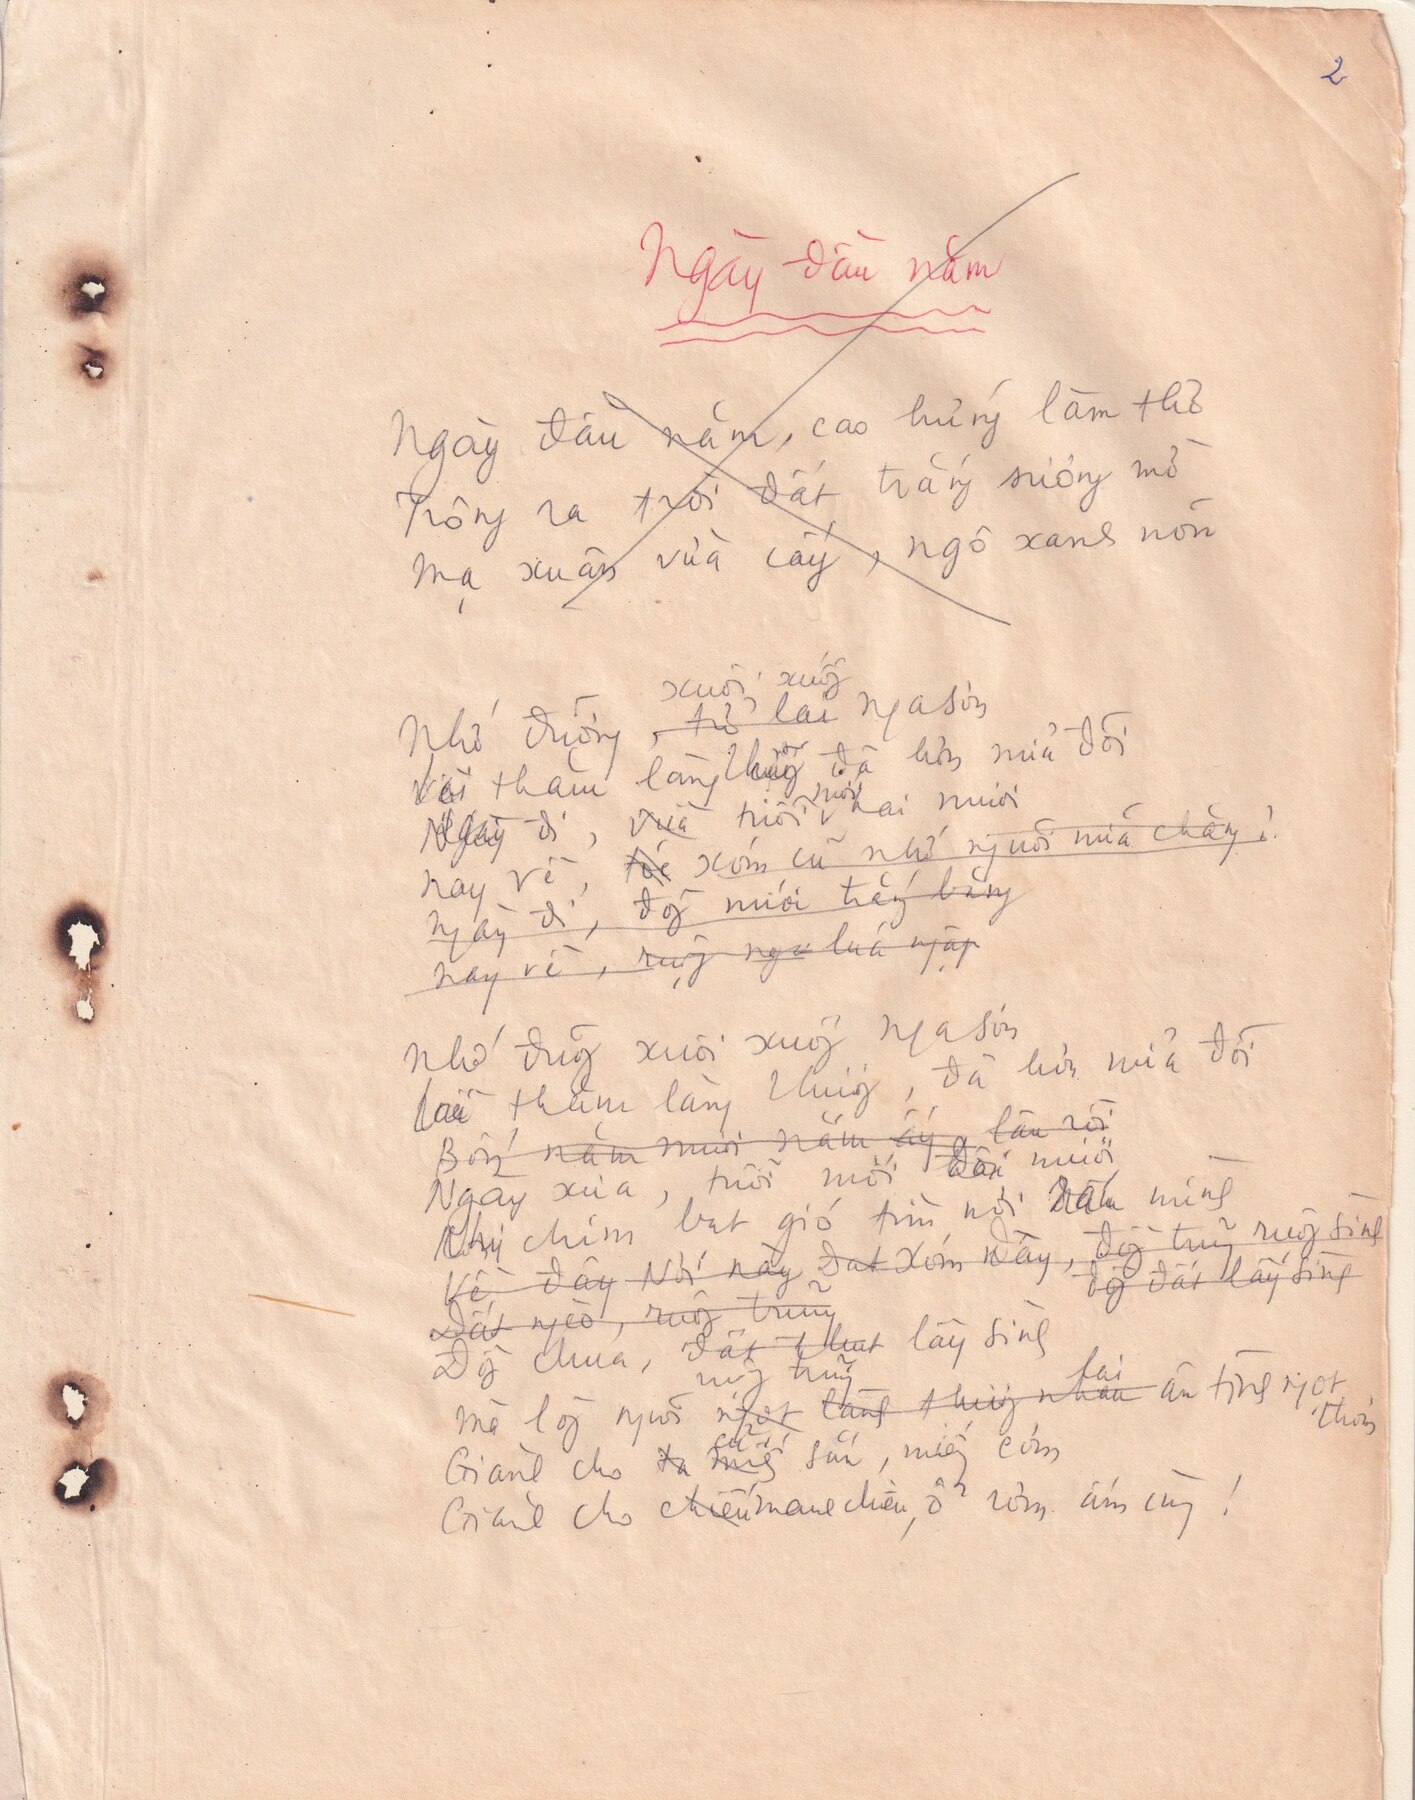 2
Ngày đầu năm
Ngày đầu năm, cao hứng làm thơ
Trông ra trời đất trắng sương mờ
Mạ xuân vừa cấy, ngô xanh nõn
xuôi xuống
Nhớ đường, trở lại Nga Sơn
thăm làng đã hơn nửa đời
mới
Ngày đi, vừa tuổi hai mươi
nay về, xóm cũ nhớ người mẹ chăng?
ngày đi, đồng muối trắng băng
nay về, ruộng lúa ngập
Nhớ đường xuôi xuống Nga Sơn
thăm làng, đã hơn nửa đời
Bốn năm mươi năm ấy, lâu rồi
Ngày xưa, tuổi mới đôi mươi
chim bạt gió tìm nơi náu mình
Về đây Nơi này Đất xóm này, đồng trũng ruộng sình
đồng đất lầy sình
Đất nghèo, ruộng trũng
Đồng chua, đất thụt lầy sình
ruộng trũng
lại
Mà lòng người ngọt làng nhau ân tình ngọt
thơm
củ
Giành cho ta miếng sắn, miếng cơm
Giành cho chiếu manh chiếu, ổ rơm ấm cùng!